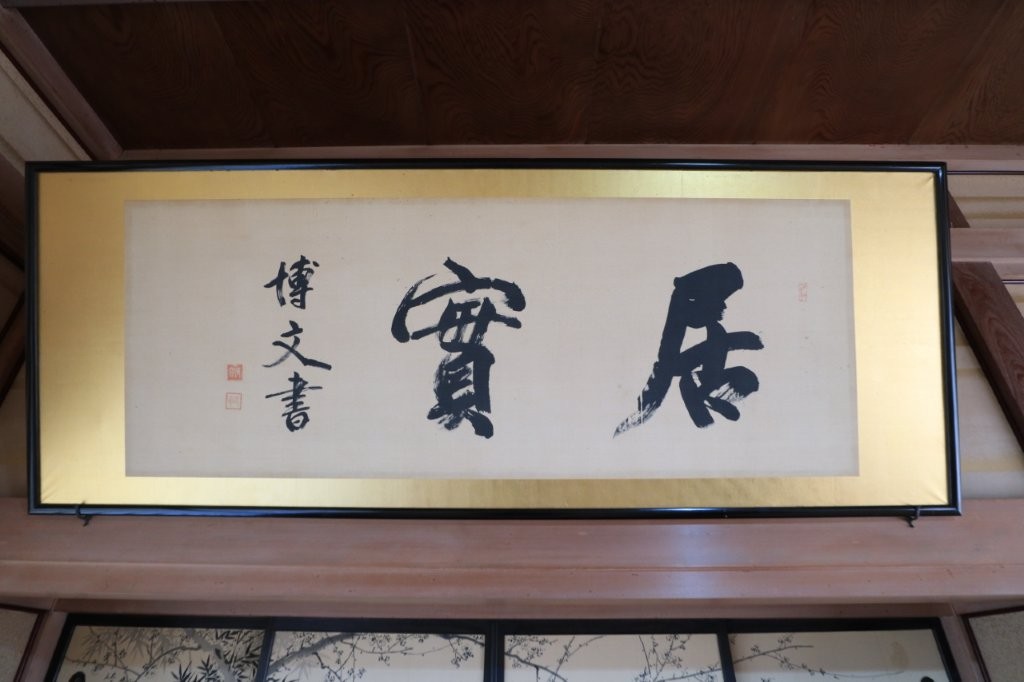 居實
博文書